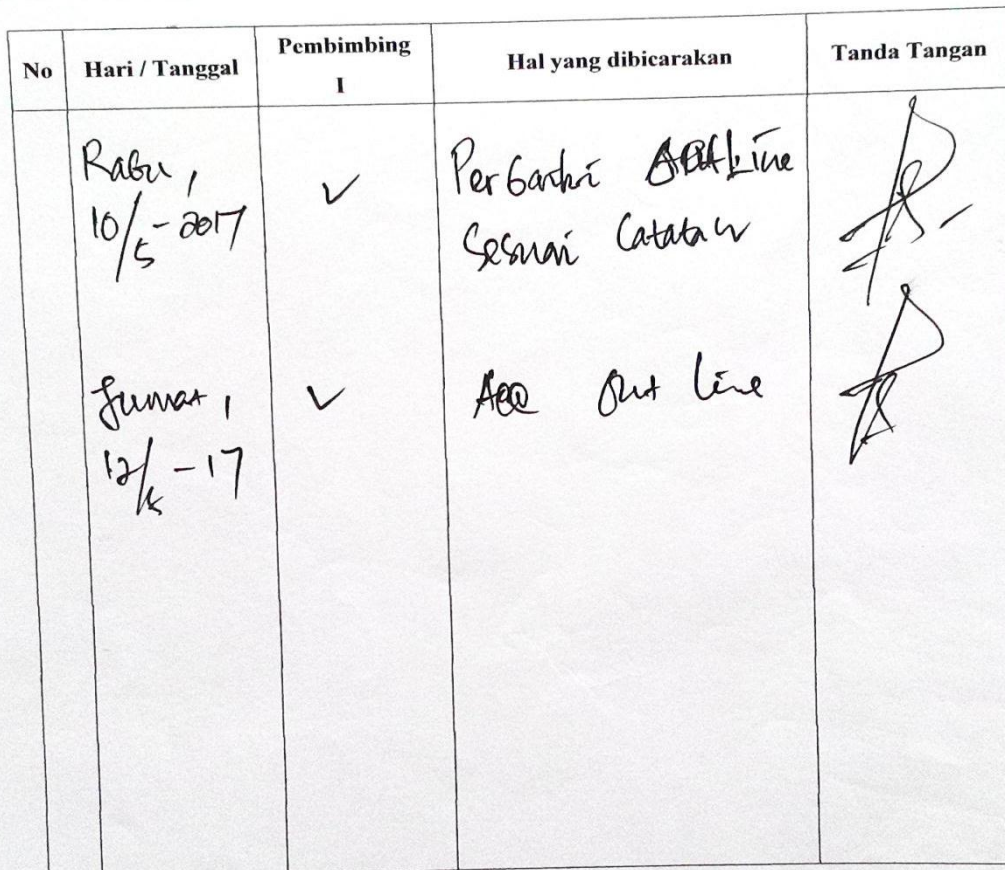 No Hari / Tanggal Pembimbing I Hal yang dibicarakan Tanda Tangan
Rabu, 10/5-2017 ✓ Perbaiki OutLine
Sesuai Catatan
Jumat, 12/5-17 ✓ Acc Out line